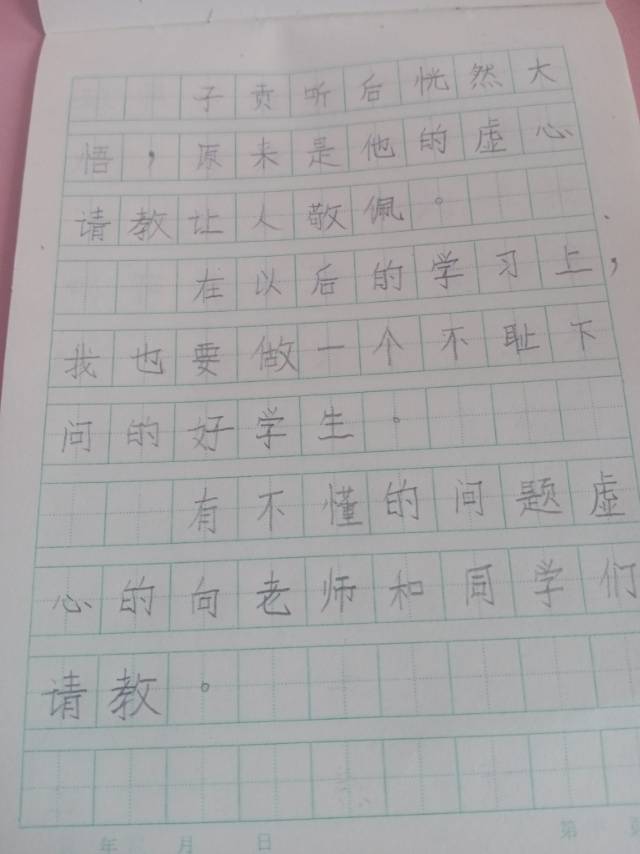 子贡听后恍然大
悟，原来是他的虚心
请教让人敬佩。
在以后的学习上，
我也要做一个不耻下
问的好学生。
有不懂的问题虚
心的向老师和同学们
请教。
年 月 日 第